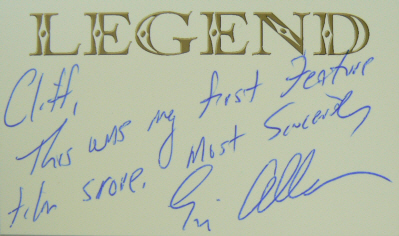 LEGEND
Cliff,
This was my first Feature
film score. Most Sincerely
Eric Allaman